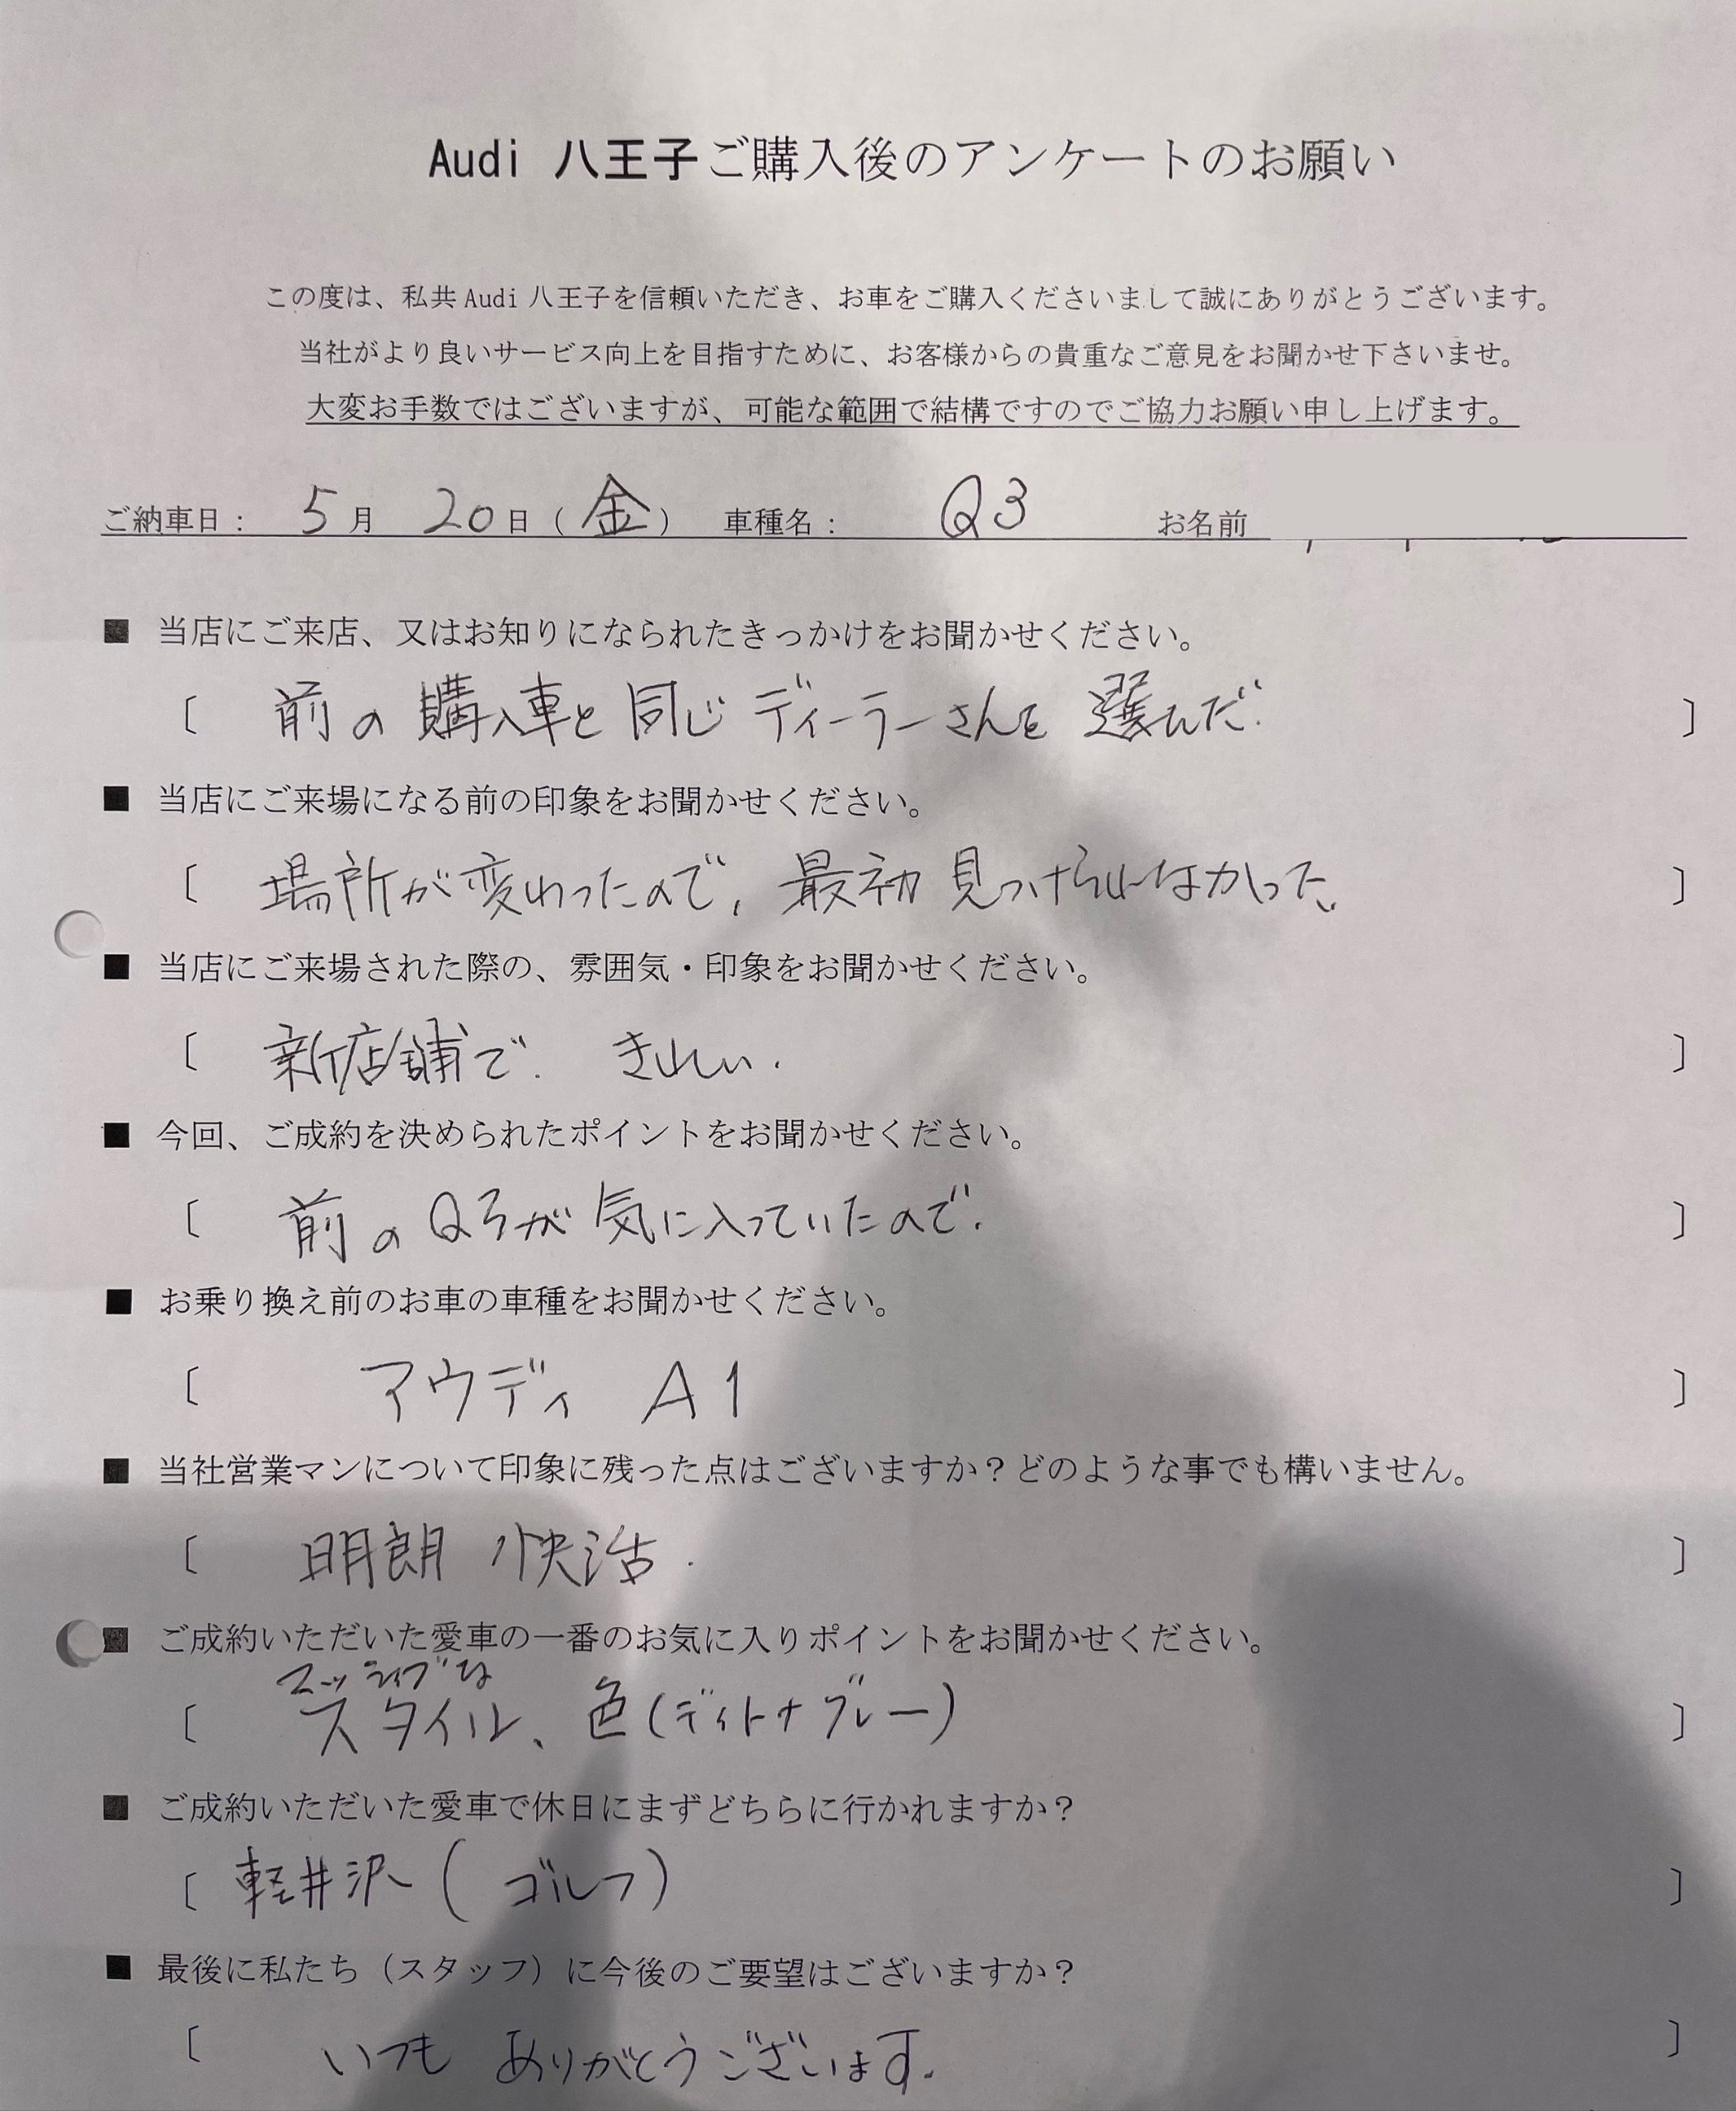 Audi 八王子ご購入後のアンケートのお願い
この度は、私共Audi八王子を信頼いただき、お車をご購入くださいまして誠にありがとうございます。
当社がより良いサービス向上を目指すために、お客様からの貴重なご意見をお聞かせ下さいませ。
大変お手数ではございますが、可能な範囲で結構ですのでご協力お願い申し上げます。
ご納車日： 5月 20日（金） 車種名： Q3 お名前
■ 当店にご来店、又はお知りになられたきっかけをお聞かせください。
〔 前の購入車と同じディーラーさんを選んだ. 〕
■ 当店にご来場になる前の印象をお聞かせください。
〔 場所が変わったので, 最初見つけられなかった. 〕
■ 当店にご来場された際の、雰囲気・印象をお聞かせください。
〔 新店舗で. きれい. 〕
■ 今回、ご成約を決められたポイントをお聞かせください。
〔 前のQ3が気に入っていたので. 〕
■ お乗り換え前のお車の車種をお聞かせください。
〔 アウディ A1 〕
■ 当社営業マンについて印象に残った点はございますか？どのような事でも構いません。
〔 明朗 快活. 〕
■ ご成約いただいた愛車の一番のお気に入りポイントをお聞かせください。
マッシブな
〔 スタイル、色(ディトナグレー) 〕
■ ご成約いただいた愛車で休日にまずどちらに行かれますか？
〔 軽井沢(ゴルフ) 〕
■ 最後に私たち（スタッフ）に今後のご要望はございますか？
〔 いつも ありがとうございます. 〕